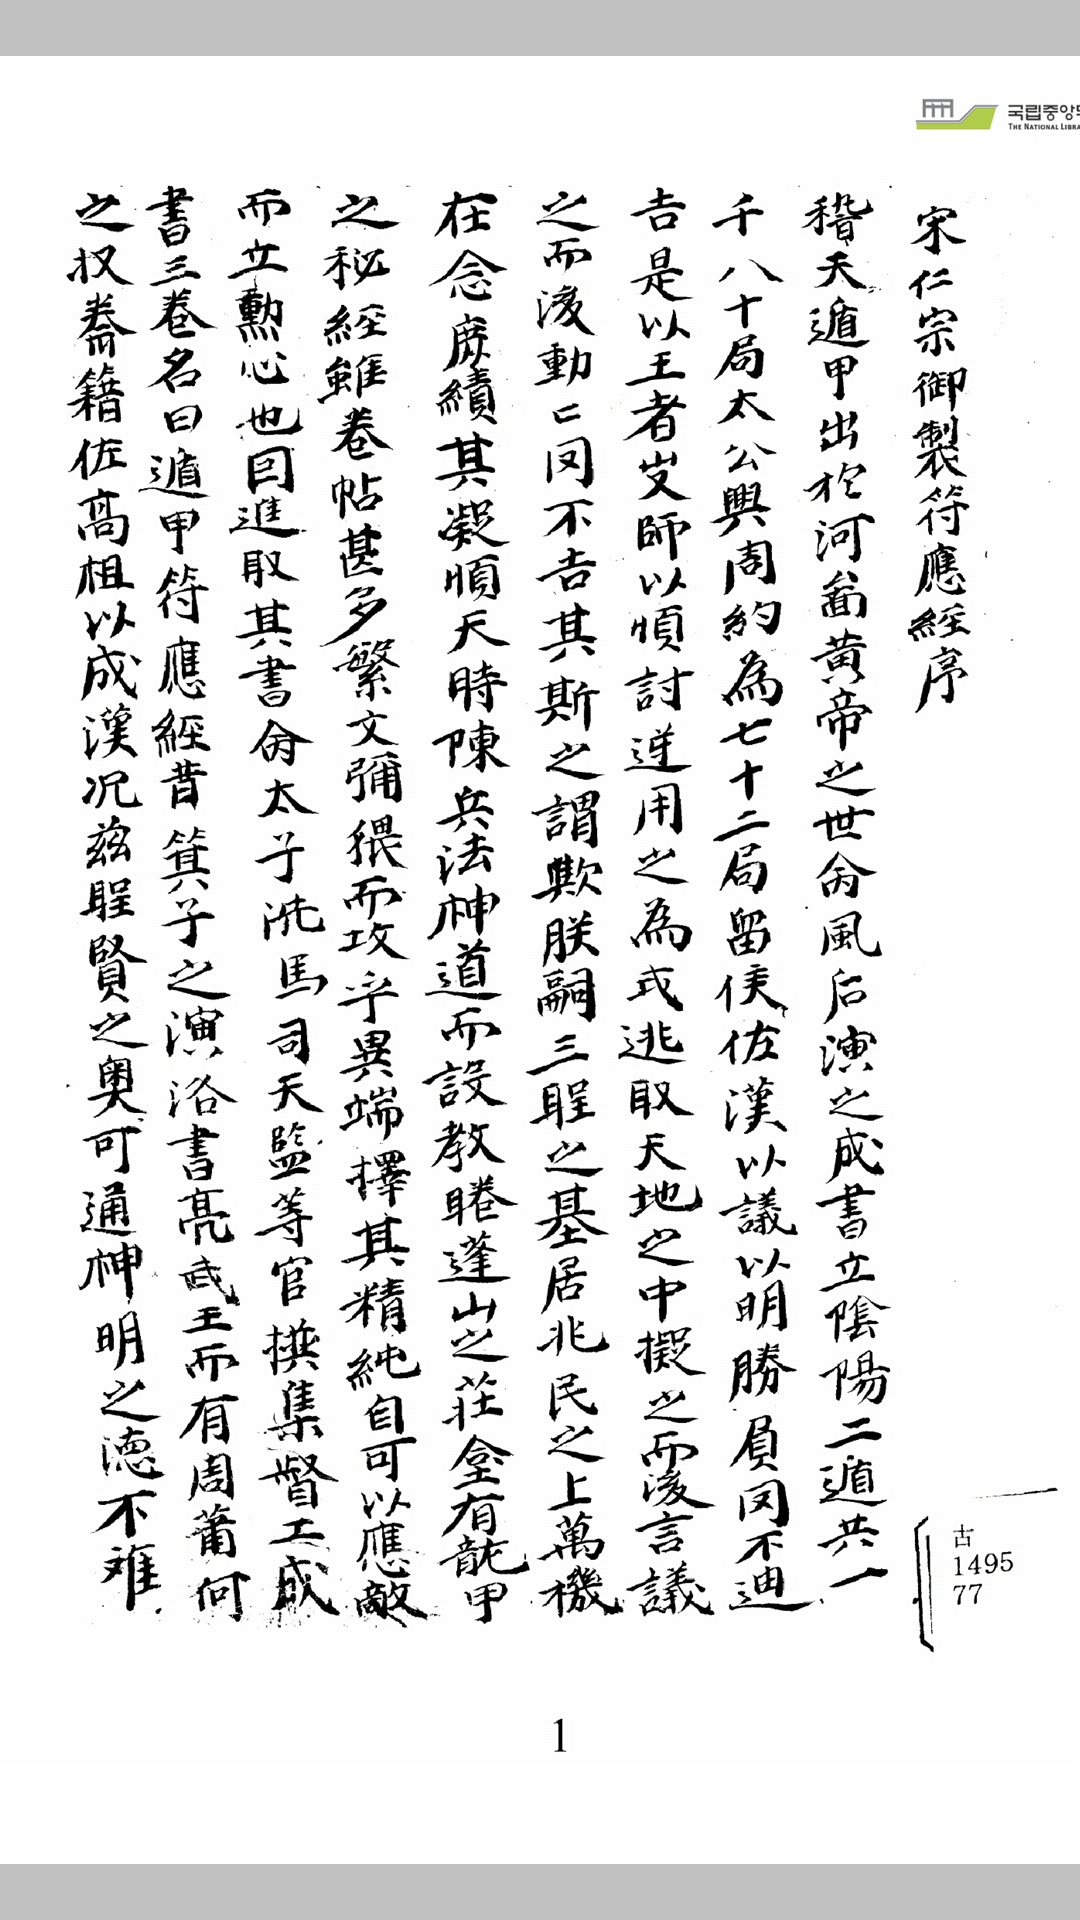 국립중앙도
THE NATIONAL LIBRA
宋仁宗御製符應經序
稽天遁甲出於河啚黃帝之世命風后演之成書立陰陽二遁共一
千八十局太公興周約為七十二局留侯佐漢以議以明勝負罔不迪
吉是以王者出師以順討逆用之為或逃取天地之中擬之而後言議
之而後動亡罔不吉其斯之謂歟朕嗣三聖之基居兆民之上萬機
在念庶績其凝順天時陳兵法神道而設教睠蓬山之莊堂有龍甲
之秘經雖卷帖甚多繁文彌猥而攻乎異端擇其精純自可以應敵
而立勳心也因進取其書命太子洗馬司天監等官撰集督工成
書三卷名曰遁甲符應經昔箕子之演洛書亮武王而有周蕭何
之收秦籍佐高祖以成漢况茲聖賢之奧可通神明之德不难
古
1495
77
1